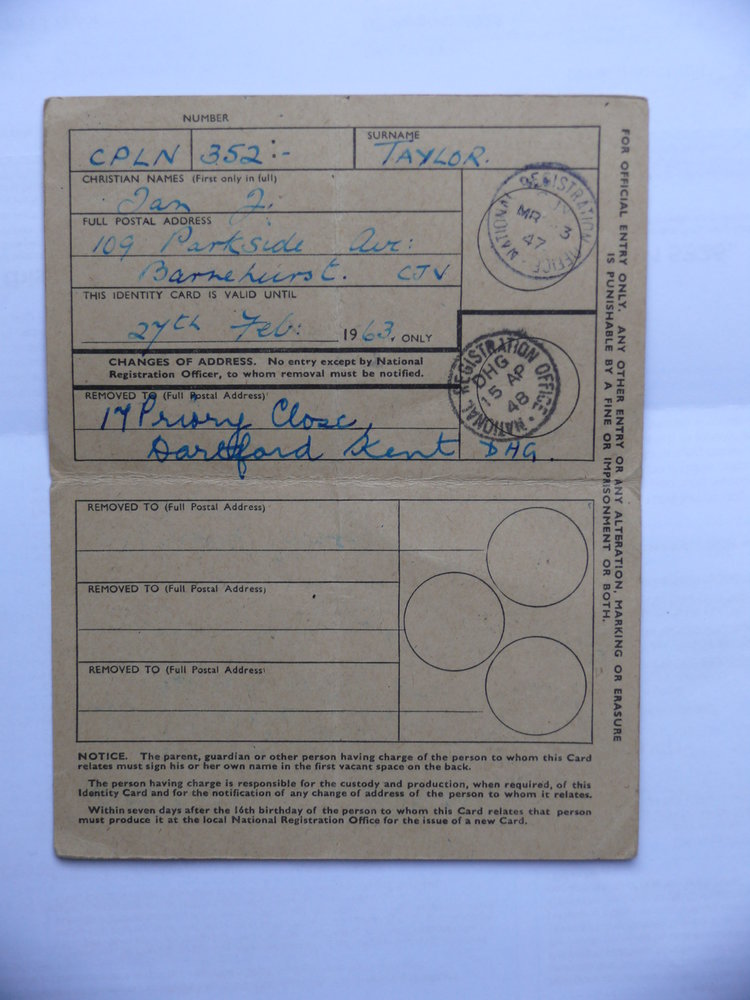 NUMBER
CPLN 352:-
SURNAME
TAYLOR.
CHRISTIAN NAMES (First only in full)
Ian J.
FULL POSTAL ADDRESS
109 Parkside Ave:
Barnehurst. CJV
THIS IDENTITY CARD IS VALID UNTIL
27th Feb: 1963, ONLY
NATIONAL REGISTRATION OFFICE
MR 3
47
CHANGES OF ADDRESS. No entry except by National
Registration Officer, to whom removal must be notified.
REMOVED TO (Full Postal Address)
17 Priory Close,
Dartford Kent DHG.
NATIONAL REGISTRATION OFFICE
DHG
15 AP
48
REMOVED TO (Full Postal Address)
REMOVED TO (Full Postal Address)
REMOVED TO (Full Postal Address)
NOTICE. The parent, guardian or other person having charge of the person to whom this Card
relates must sign his or her own name in the first vacant space on the back.
The person having charge is responsible for the custody and production, when required, of this
Identity Card and for the notification of any change of address of the person to whom it relates.
Within seven days after the 16th birthday of the person to whom this Card relates that person
must produce it at the local National Registration Office for the issue of a new Card.
FOR OFFICIAL ENTRY ONLY. ANY OTHER ENTRY OR ANY ALTERATION, MARKING OR ERASURE
IS PUNISHABLE BY A FINE OR IMPRISONMENT OR BOTH.